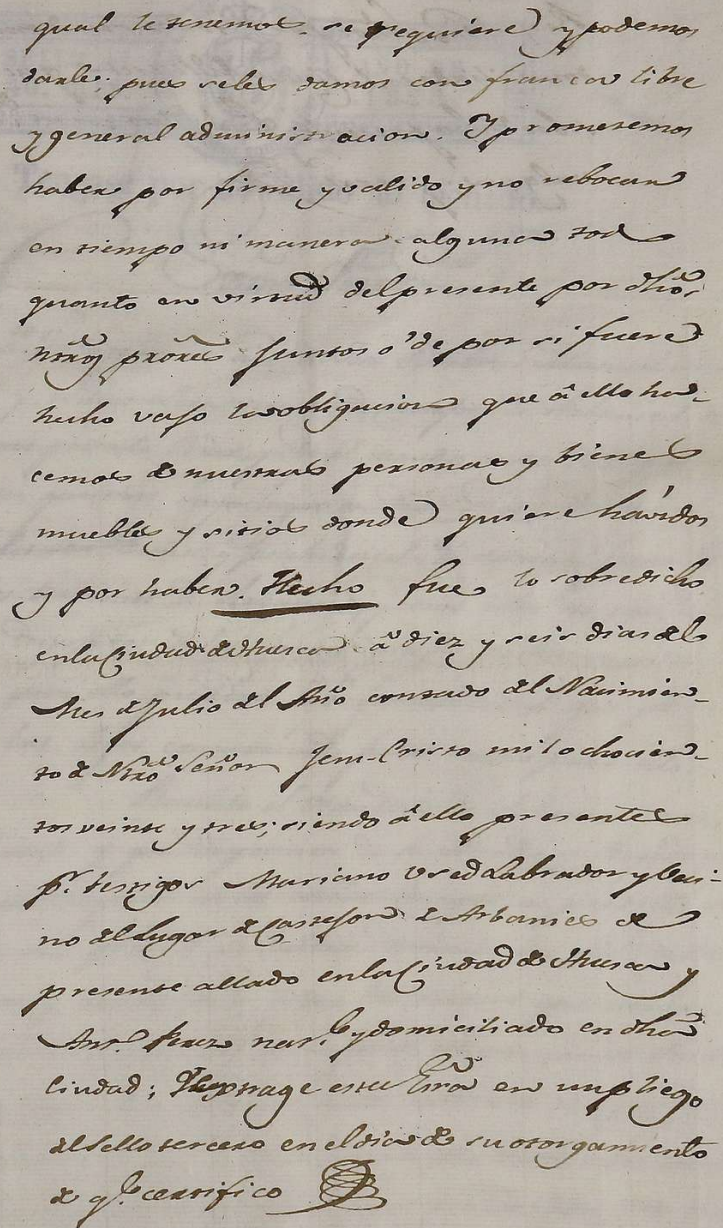 qual le tenemos, se requiere y podemos
darle; pues seles damos con franca libre
y general administracion. Y prometemos
haber por firme y valido y no rebocar
en tiempo ni manera alguna todo
quanto en virtud del presente por dhos
nros prores juntos ó de por si fuere
hecho vajo la obligacion que á ello ha-
cemos de nuestras personas y bienes
muebles y sitios donde quiere havidos
y por haber. Hecho fue lo sobredicho
en la Ciudad de Huesca á diez y seis dias del
Mes de Julio del Año contado del Nacimien-
to de Nro Señor Jesu-Cristo mil ochocien-
tos veinte y tres; siendo á ello presentes
pr. testigos Mariano Used Labrador y Veci-
no del Lugar de Castejon de Arbanies de
presente allado en la Ciudad de Huesca y
Anto. Perez natl. y domiciliado en dha
Ciudad; Y extrage esta Esra en un pliego
del Sello tercero en el dia de su otorgamiento
de qe. certifico